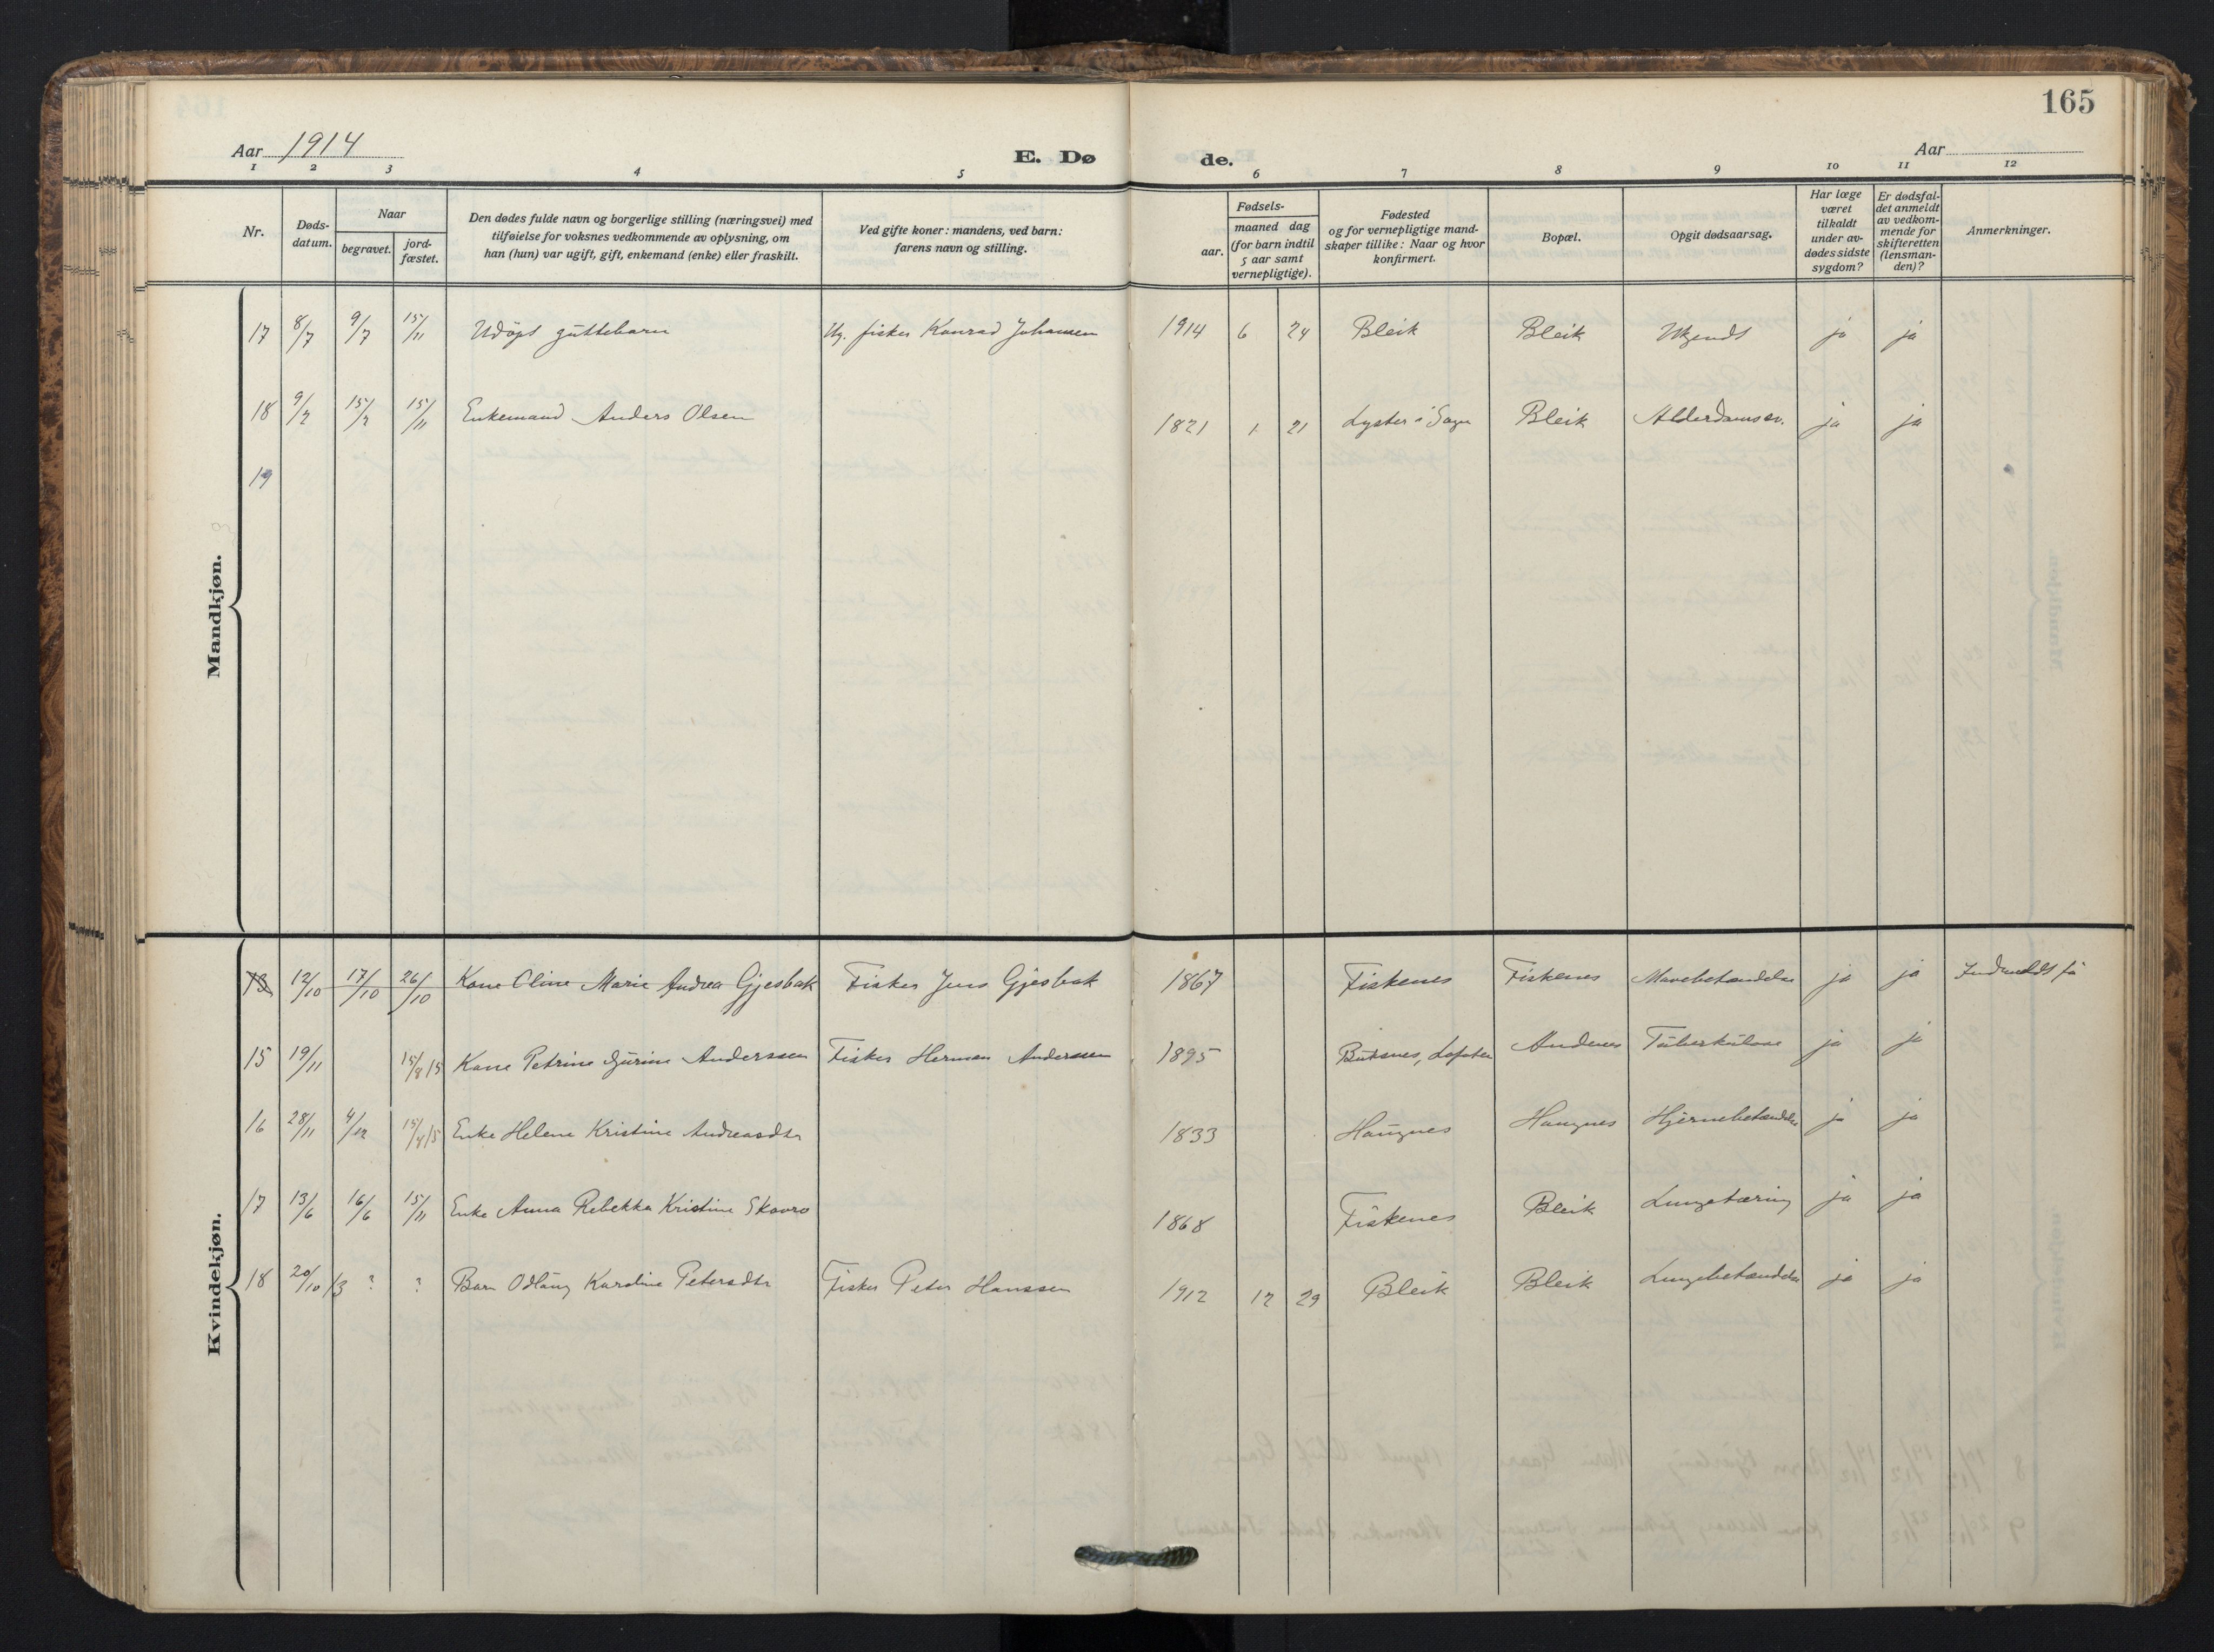 165
Aar 1914
E. Dø de.
Aar
1 2 3 4 5 6 7 8 9 10 11 12
Nr.
Døds-
datum.
Naar
begravet.
jord-
fæstet.
Den dødes fulde navn og borgerlige stilling (næringsvei) med
tilføielse for voksnes vedkommende av oplysning, om
han (hun) var ugift, gift, enkemand (enke) eller fraskilt.
Ved gifte koner: mandens, ved barn:
farens navn og stilling.
Fødsels-
aar.
maaned dag
(for barn indtil
5 aar samt
vernepligtige).
Fødested
og for vernepligtige mand-
skaper tillike: Naar og hvor
konfirmert.
Bopæl.
Opgit dødsaarsag.
Har læge
været
tilkaldt
under av-
dødes sidste
sygdom?
Er dødsfal-
det anmeldt
av vedkom-
mende for
skifteretten
(lensman-
den)?
Anmerkninger.
Mandkjøn.
17 8/7 9/7 15/11 Udöpt guttebarn Ug. fisker Konrad Johansen 1914 6 24 Bleik Bleik Ukjendt ja ja
18 9/7 15/7 15/11 Enkemand Anders Olsen 1821 1 21 Lyster i Sogn Bleik Alderdomssv. ja ja
19
Kvindekjøn.
12/10 17/10 26/10 Kone Oline Marie Andrea Gjesbak Fisker Jens Gjesbak 1867 Fiskenes Fiskenes Mavebetændelse ja ja
15 19/11 15/8 15 Kone Petrine Jurine Anderssen Fisker Herman Anderssen 1895 Buksnes, Lofoten Andenes Tuberkulose ja ja
16 28/11 4/12 15/8 15 Enke Helene Kristine Andreasdtr 1833 Haugnes Haugnes Hjernebetændelse ja ja
17 13/6 16/6 15/11 Enke Anna Rebekka Kristine Skavro 1868 Fiskenes Bleik Lungetæring ja ja
18 20/10 13 ? ? Barn Odlaug Karoline Petersdtr Fisker Peter Hanssen 1912 12 29 Bleik Bleik Lungebetændelse ja ja